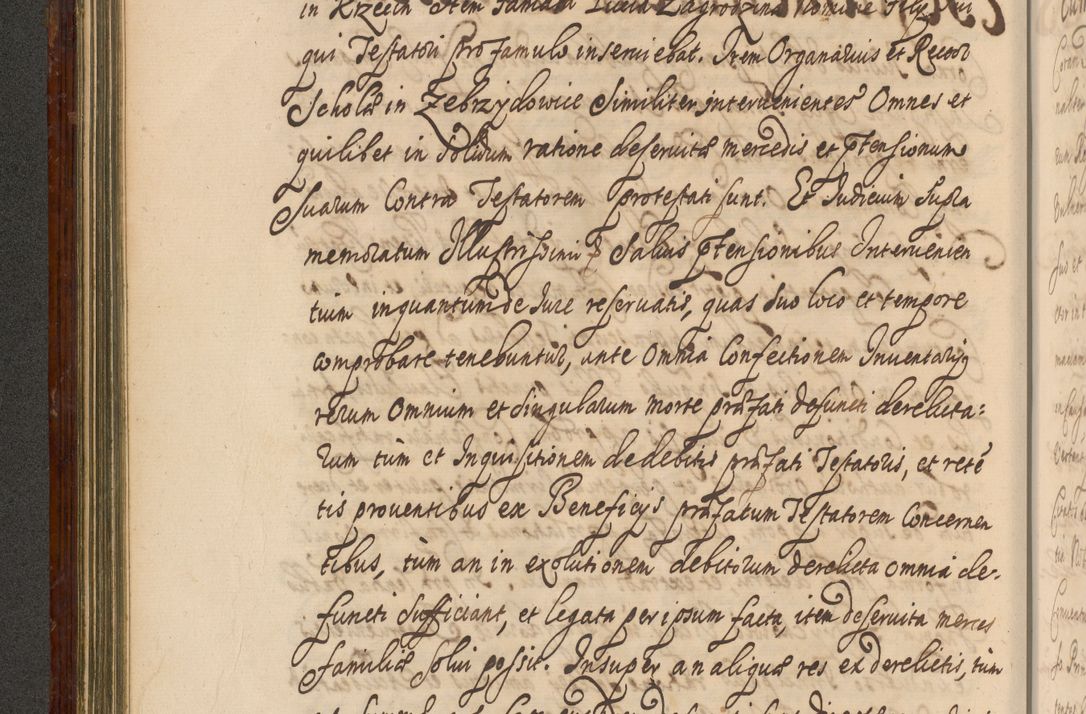 in Krzecin Item famata Zagrodzina nomine filij sui
qui Testatori pro famulo inserviebat. Item Organarius et Rector
Scholæ in Zebrzydowice similiter intervenientes Omnes et
quilibet in solidum ratione deservitæ mercedis et ptensionum
suarum Contra Testatorem protestati sunt. Et Judicium supra
memoratum Illustrissimi salvis ptensionibus Intervenien
tium inquantum de Jure reservatis, quas suo loco et tempore
comprobare tenebuntur, ante omnia Confectionem Inventarij
rerum omnium et singularum morte præfati defuncti derelicta=
rum tum et Inquisitionem de debitis præfati Testatoris, et reté
tis proventibus ex Beneficijs præfatum Testatorem Concernen
tibus, tum an in exolutionem debitorum derelicta omnia de-
functi sufficiant, et legata per ipsum facta, item deservita merces
familiæ solvi possit. Insuper an aliquæ res ex derelictis, tum